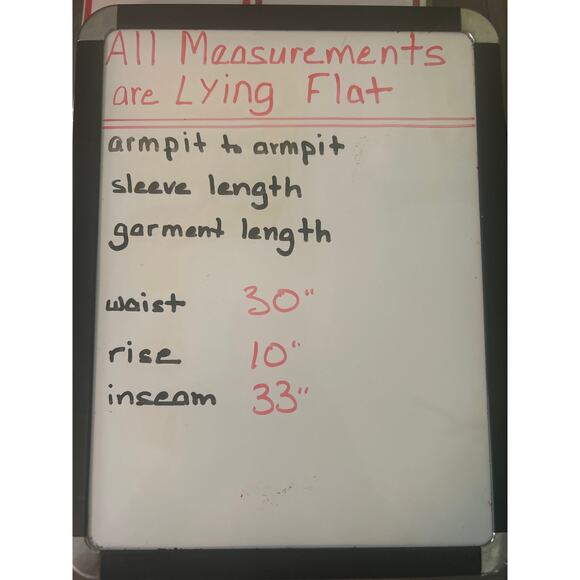 All Measurements
are Lying Flat
armpit to armpit
sleeve length
garment length
waist 30"
rise 10"
inseam 33"